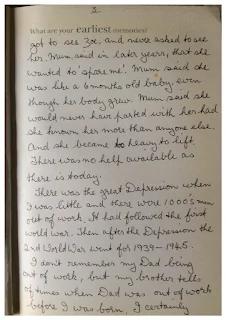 3
What are your earliest memories?
got to see Zoe, and never asked to see
her. Mum said in later years, that she
wanted to 'spare me'. Mum said she
was like a 6 months old baby even
though her body grew. Mum said she
would never have parted with her had
she known her more than anyone else.
And she became too heavy to lift.
There was no help available as
there is today.
There was the great Depression when
I was little and there were 1000s men
out of work. It had followed the first
world war. Then after the Depression the
2nd World War went for 1939-1945.
I don't remember my Dad being
out of work, but my brother tells
of times when Dad was out of work
before I was born. I certainly